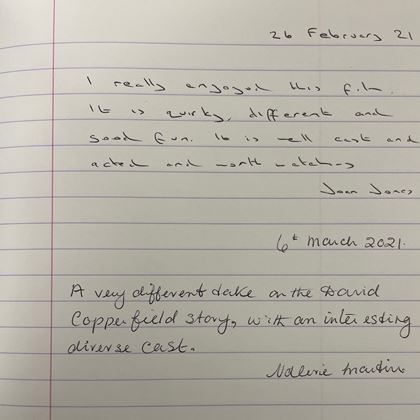 26 February 21
I really enjoyed this film.
It is quirky, different and
good fun. It is well cast and
acted and worth watching
Joan Jones
6th March 2021.
A very different take on the David
Copperfield story, with an interesting
diverse cast.
Valerie Martin